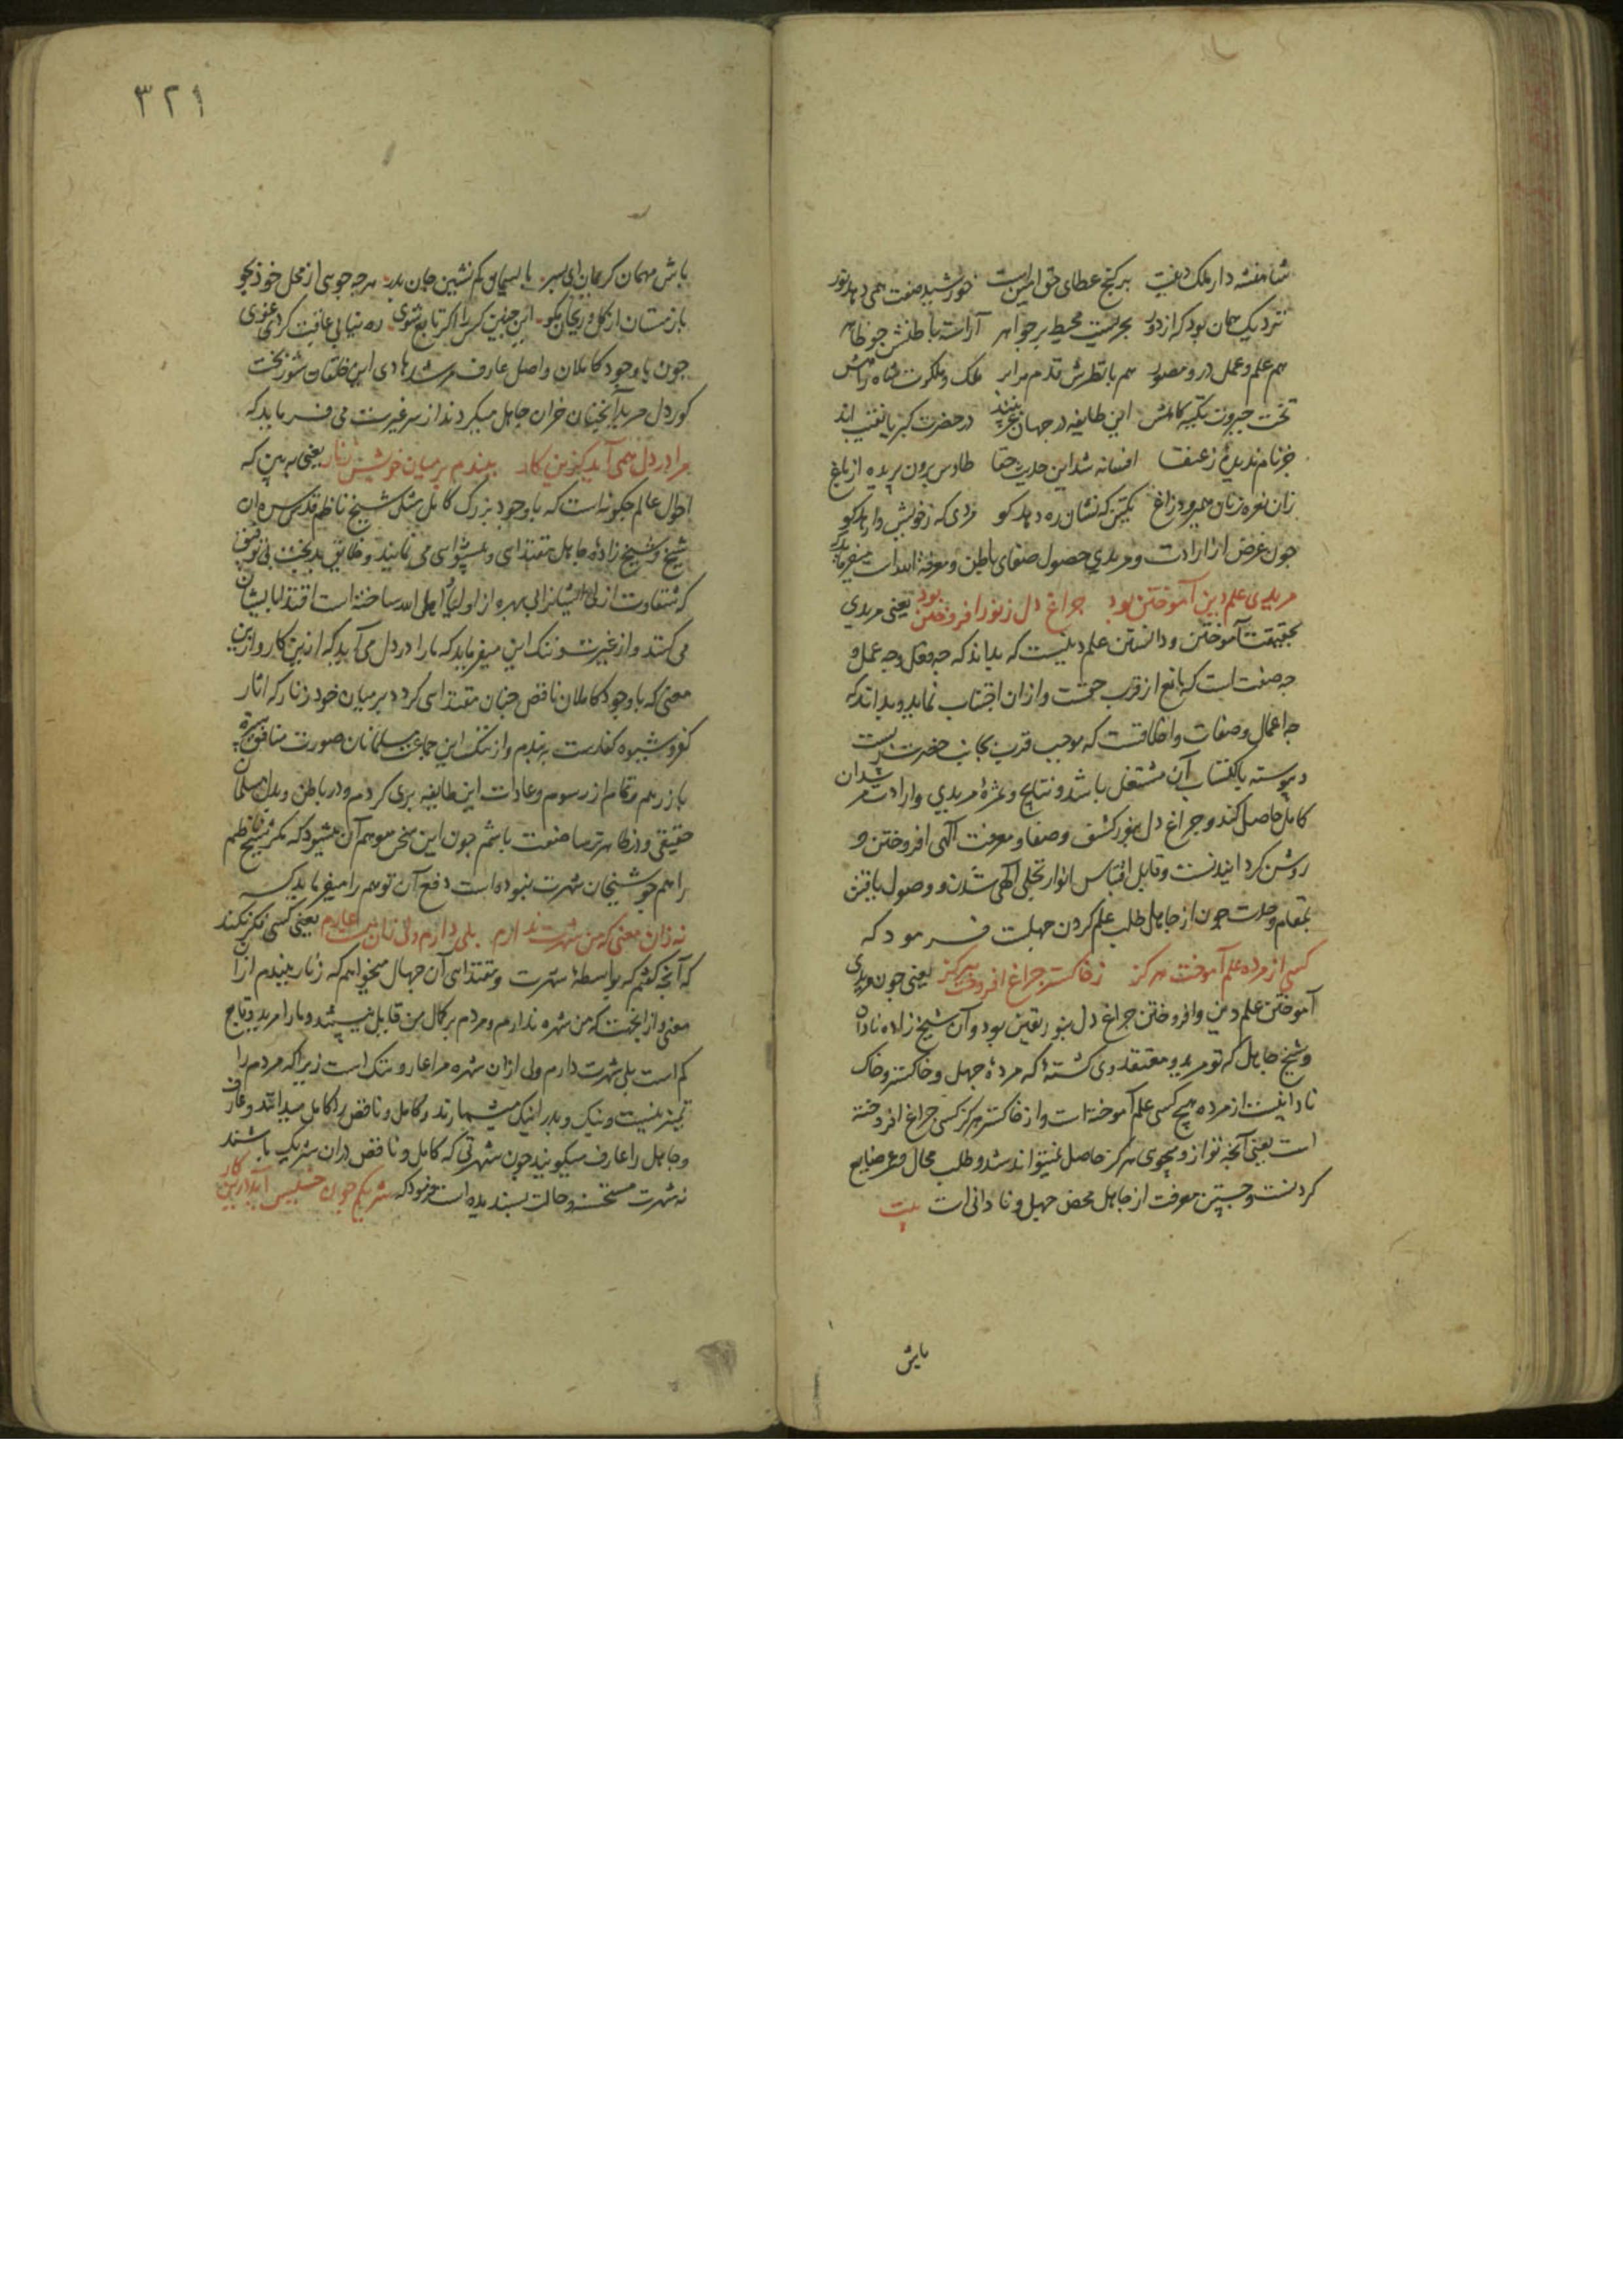 شاهنشه دار ملک دینست بر گنج عطای حق امین است خورشید صفت همی دهد نور
نزدیک همان بود که از دور بحریست محیط پر جواهر آراسته باطنش چو ظاهر
هم علم و عمل درو مصور هم با نظرش قدم برابر ملک و ملکوت شاه راهش
تخت جبروت تکیه گاهش این طایفه در جهان غریبند در حضرت کبریا نقیب اند
جز نام ندیدهٔ ز عنقا افسانه شد این حدیث حقا طاوس برون پریده از باغ
زان نعره زنان همی رود زاغ یکتن که نشان ره دهد کو مردی که ز خویش وارهد کو
چون غرض از ارادت و مریدی حصول صفای باطن و معرفة الله است میفرماید که
مریدی علم دین آموختن بود چراغ دل ز نور افروختن بود یعنی مریدی
بحقیقت آموختن و دانستن علم دینست که بداند که چه فعل و چه عمل و
چه صفت است که مانع از قرب حقست و از آن اجتناب نماید و بداند که
چه اعمال و صفات و اخلاقست که موجب قرب بجانب حضرتست
و پیوسته باکتساب آن مشتغل باشد و نتایج و ثمرهٔ مریدی و ارادت مرشدان
کامل حاصل کند و چراغ دل بنور کشف و صفا و معرفت الهی افروختن و
روشن گردانیدنست و قابل اقتباس انوار تجلی الهی شدن و وصول یافتن
بمقام وحدت چون از جاهل طلب علم کردن جهلست فرمود که
کسی از مرده علم آموخت هرگز ز خاکستر چراغ افروخت هرگز یعنی چون مریدی
آموختن علم دین و افروختن چراغ دل بنور یقین بود و آن شیخ زاده نادان
و شیخ جاهل که تو مرید و معتقد وی گشتهٔ که مردهٔ جهل و خاکستر و خاک
نادانیست از مرده هیچ کسی علم آموخته است و از خاکستر هرگز کسی چراغ افروخته
است یعنی آنچه تو از و میجوی هرگز حاصل نمیتواند شد و طلب محال و عمر ضایع
کردنست و جستن معرفت از جاهل محض جهل و نادانی است بیت
باش
٣٢١
باش مهمان کریمان ای پسر با لئیمان کم نشین جان پدر هرچه جوی از محل خود بجو
باز مستان از گل و ریحان بگو این چنین کس را اگر تابع شوی ره نیابی عاقبت گردی غوی
چون با وجود کاملان واصل عارف مرشد هادی این خلقان شور بخت
کور دل مرید آنچنان خران جاهل میگردند از سر غیرت می فرماید که
مرا در دل همی آید کزین کار ببندم بر میان خویش زنار یعنی به بین که
احوال عالم چگونه است که با وجود بزرگ کامل مثل شیخ ناظم قدس سره ان
شیخ و شیخ زادهٔ جاهل مقتدای و پیشوای می نمایند و خلایق بدبخت بی توفیق
که شقاوت ازلی ایشانرا بی بهره از اولیاء اهل الله ساخته است اقتدا بایشان
می کنند و از غیرت و ننک این میفرماید که ما را در دل می آید که ازین کار و ازین
معنی که با وجود کاملان ناقص چنان مقتدای گردد بر میان خود زنار که آثار
کفر و شیوه کفارست بندم و از ننک این جماعت مسلمانان صورت منافق سیرت
باز رهم و تمام از رسوم و عادات این طایفه بری گردم و در باطن و بدل مسلمان
حقیقی و در ظاهر ترسا صفت باشم چون این سخن موهم آن میشود که مگر شیخ ناظم
را همچو شیخان شهرت نبوده است دفع آن توهم را میفرماید که
نه زان معنی که من شهرت ندارم بلی دارم ولی زان هست عارم یعنی کسی فکر نکند
که آنچه گفتم که بواسطهٔ شهرت و مقتدای آن جهال میخواهم که زنار بندم از ان
معنی و از انجهت که من شهره ندارم و مردم بر کمال من قابل نیستند و ما را مرید و تابع
کم است بلی شهرت دارم ولی از ان شهره مرا عار و ننک است زیرا که مردم را
تمیز نیست و نیک و بد را نیک میشمارند و کامل و ناقص را کامل میدانند و عارف
و جاهل را عارف میگویند چون شهرتی که کامل و ناقص در ان شریک باشند
نه شهرت مستحسنه و حالت پسندیده است فرمود که شریکم چون خسیس آمد درین کار